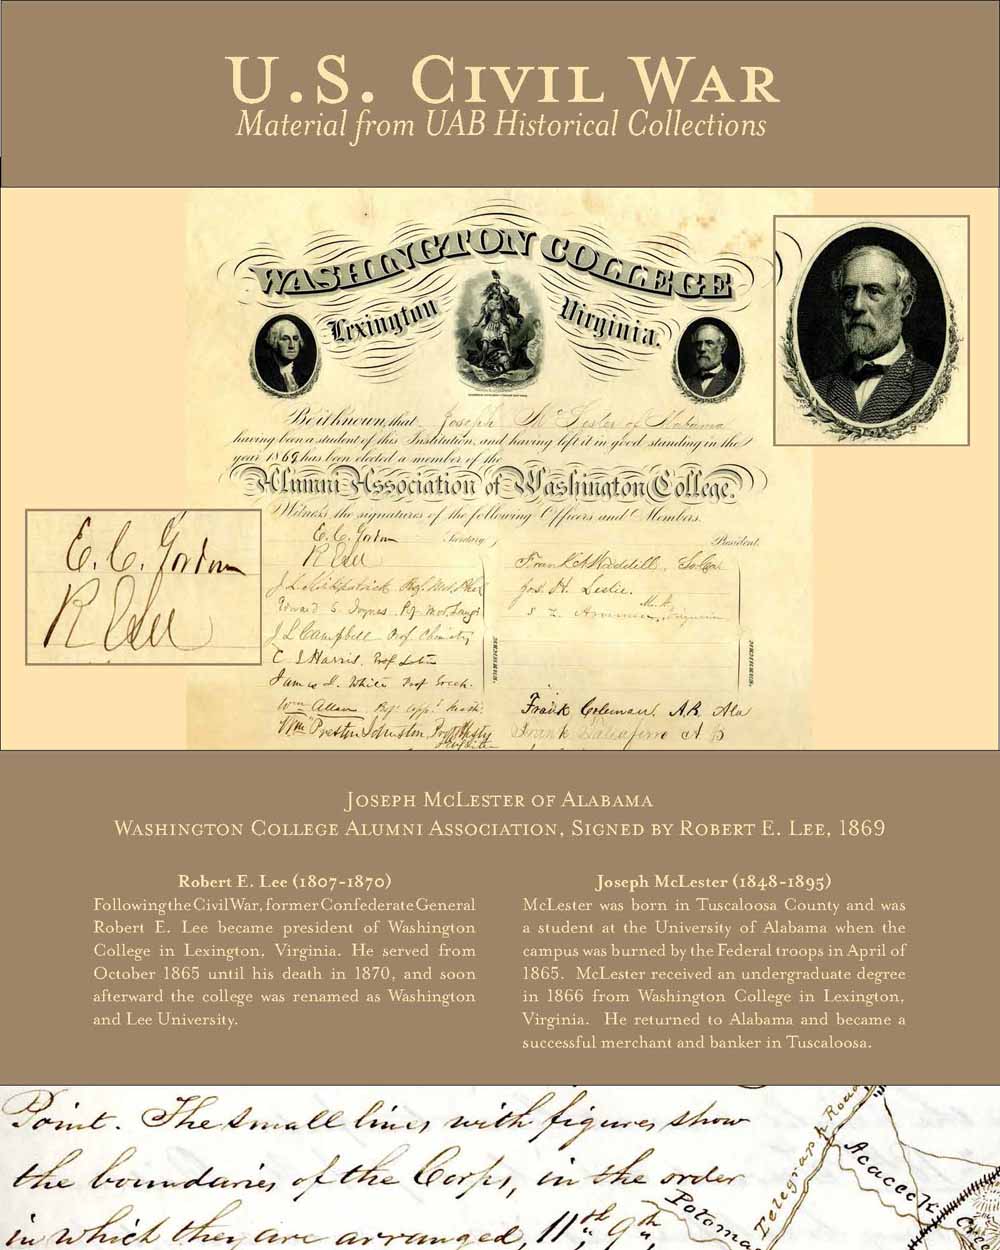 U.S. Civil War
Material from UAB Historical Collections
WASHINGTON COLLEGE
Lexington Virginia.
Be it known that Joseph McLester of Alabama
having been a student of this Institution, and having left it in good standing in the
year 1869, has been elected a member of the
Alumni Association of Washington College.
Witness the signatures of the following Officers and Members.
E. C. Gordon Secretary, President.
R E Lee
J. L. Kirkpatrick Prof. Mor. Phil
Edward S. Joynes. Prof. Mod. Langs
J L Campbell Prof. Chemistry
C. J. Harris, Prof Latin
James J. White Prof Greek.
Wm Allan Prof. App. Math.
Wm Preston Johnston, Prof Histy
MEMBERS.
Jos. H. Leslie.
Frank Coleman. A.B. Ala
Frank Taliaferro A B
MEMBERS.
E. C. Gordon
R E Lee
Joseph McLester of Alabama
Washington College Alumni Association, Signed by Robert E. Lee, 1869
Robert E. Lee (1807-1870)
Following the Civil War, former Confederate General
Robert E. Lee became president of Washington
College in Lexington, Virginia. He served from
October 1865 until his death in 1870, and soon
afterward the college was renamed as Washington
and Lee University.
Joseph McLester (1848-1895)
McLester was born in Tuscaloosa County and was
a student at the University of Alabama when the
campus was burned by the Federal troops in April of
1865. McLester received an undergraduate degree
in 1866 from Washington College in Lexington,
Virginia. He returned to Alabama and became a
successful merchant and banker in Tuscaloosa.
Point. The small lines with figures show
the boundaries of the Corps, in the order
in which they are arranged, 11th, 9th,
Potoma
Telegraph Road
Acaceek